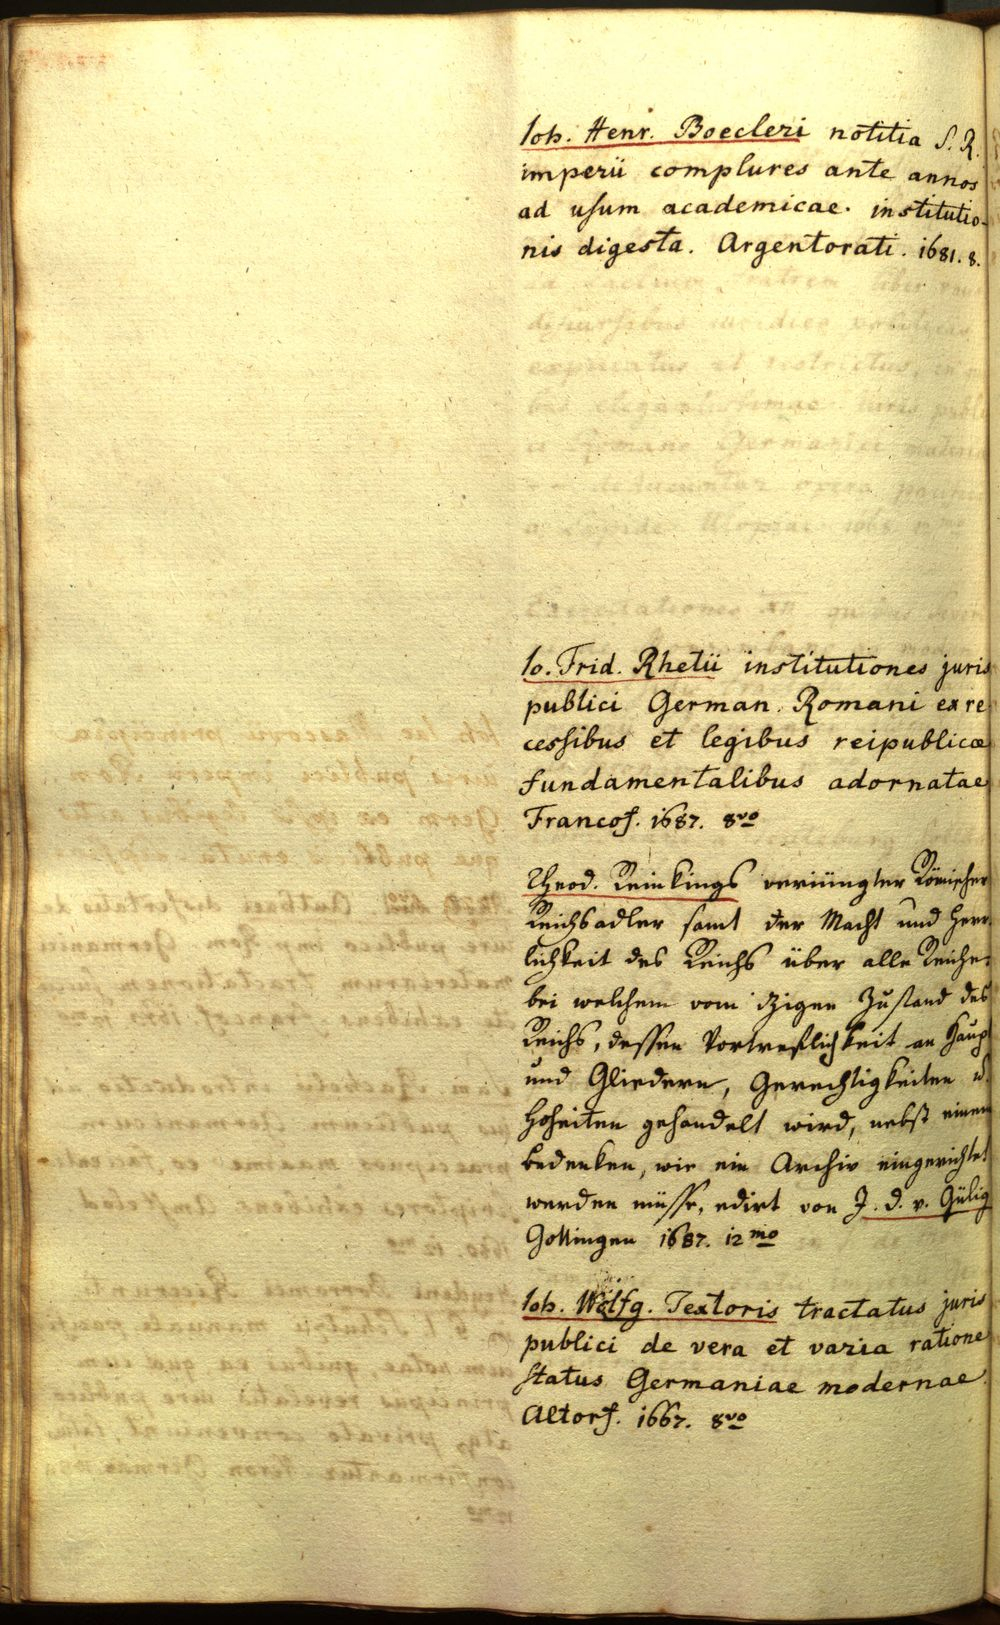 Ioh. Henr. Boecleri notitia S. R.
imperii complures ante annos
ad usum academicae institutio-
nis digesta. Argentorati. 1681. 8.
Io. Frid. Rhetii institutiones juris
publici German. Romani ex re
cessibus et legibus reipublicae
fundamentalibus adornatae
Francof. 1687. 8vo
Theod. Reinkings verjüngter Römischer
Reichsadler samt der Macht und Herr-
lichkeit des Reichs über alle Reiche,
bei welchem vom itzigen Zustand des
Reichs, dessen Vortreflichkeit an Haupt
und Gliedern, Gerechtigkeiten u.
Hoheiten gehandelt wird, nebst einem
bedenken, wie ein Archiv eingerichtet
werden müsse, edirt von J. D. v. Gülig
Gottingen 1687. 12mo
Ioh. Wolfg. Textoris tractatus juris
publici de vera et varia ratione
status Germaniae modernae.
Altorf. 1667. 8vo